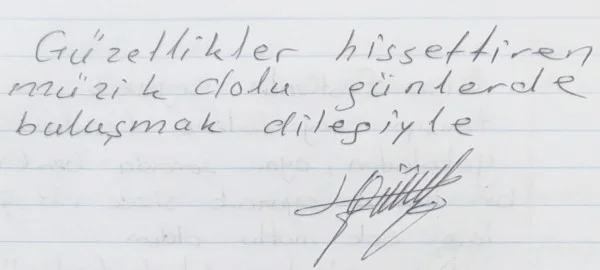 Güzellikler hissettiren
müzik dolu günlerde
buluşmak dileğiyle